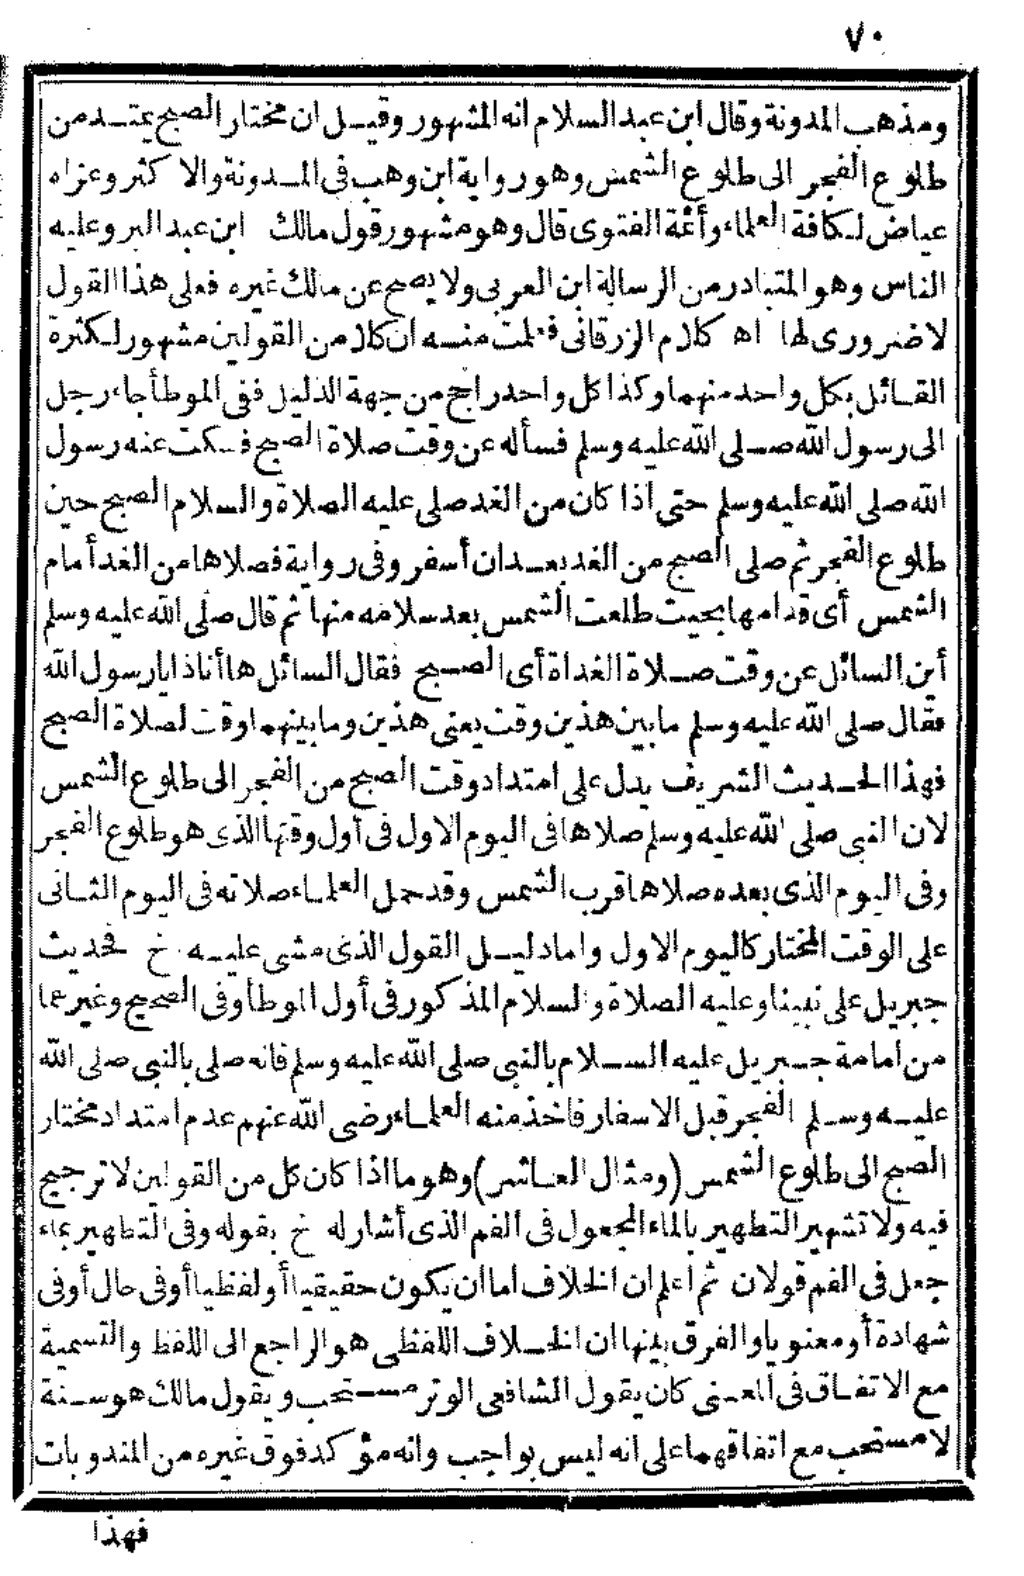 ٧٠
ومذهب المدونة وقال ابن عبد السلام انه المشهور وقيل ان مختار الصبح يمتد من
طلوع الفجر الى طلوع الشمس وهو رواية ابن وهب فى المدونة والاكثر وعزاه
عياض لكافة العلماء وأئمة الفتوى قال وهو مشهور قول مالك ابن عبد البر وعليه
الناس وهو المتبادر من الرسالة ابن العربى ولا يصح عن مالك غيره فعلى هذا القول
لا ضرورى لها اه كلام الزرقانى فعلمت منه ان كلا من القولين مشهور لكثرة
القائل بكل واحد منهما وكذا كل واحد راجح من جهة الدليل ففى الموطأ جاء رجل
الى رسول الله صلى الله عليه وسلم فسأله عن وقت صلاة الصبح فسكت عنه رسول
الله صلى الله عليه وسلم حتى اذا كان من الغد صلى عليه الصلاة والسلام الصبح حين
طلوع الفجر ثم صلى الصبح من الغد بعد ان أسفر وفى رواية فصلاها من الغد أمام
الشمس أى قدامها بحيث طلعت الشمس بعد سلامه منها ثم قال صلى الله عليه وسلم
أين السائل عن وقت صلاة الغداة أى الصبح فقال السائل ها أنا ذا يا رسول الله
فقال صلى الله عليه وسلم ما بين هذين وقت يعنى هذين وما بينهما وقت لصلاة الصبح
فهذا الحديث الشريف يدل على امتداد وقت الصبح من الفجر الى طلوع الشمس
لان النبى صلى الله عليه وسلم صلاها فى اليوم الاول فى أول وقتها الذى هو طلوع الفجر
وفى اليوم الذى بعده صلاها قرب الشمس وقد حمل العلماء صلاته فى اليوم الثانى
على الوقت المختار كاليوم الاول واما دليل القول الذى مشى عليه خ فحديث
جبريل على نبينا وعليه الصلاة والسلام المذكور فى أول الموطأ وفى الصحيح وغيرهما
من امامة جبريل عليه السلام بالنبى صلى الله عليه وسلم فانه صلى بالنبى صلى الله
عليه وسلم الفجر قبل الاسفار فاخذ منه العلماء رضى الله عنهم عدم امتداد مختار
الصبح الى طلوع الشمس (ومثال العاشر) وهو ما اذا كان كل من القولين لا ترجيح
فيه ولا تشهير التطهير بالماء المجعول فى الفم الذى أشار له خ بقوله وفى التطهير بماء
جعل فى الفم قولان ثم اعلم ان الخلاف اما ان يكون حقيقيا أو لفظيا أو فى حال أو فى
شهادة أو معنويا والفرق بينها ان الخلاف اللفظى هو الراجع الى اللفظ والتسمية
مع الاتفاق فى المعنى كان يقول الشافعى الوتر مستحب ويقول مالك هو سنة
لا مستحب مع اتفاقهما على انه ليس بواجب وانه مؤكد فوق غيره من المندوبات
فهذا